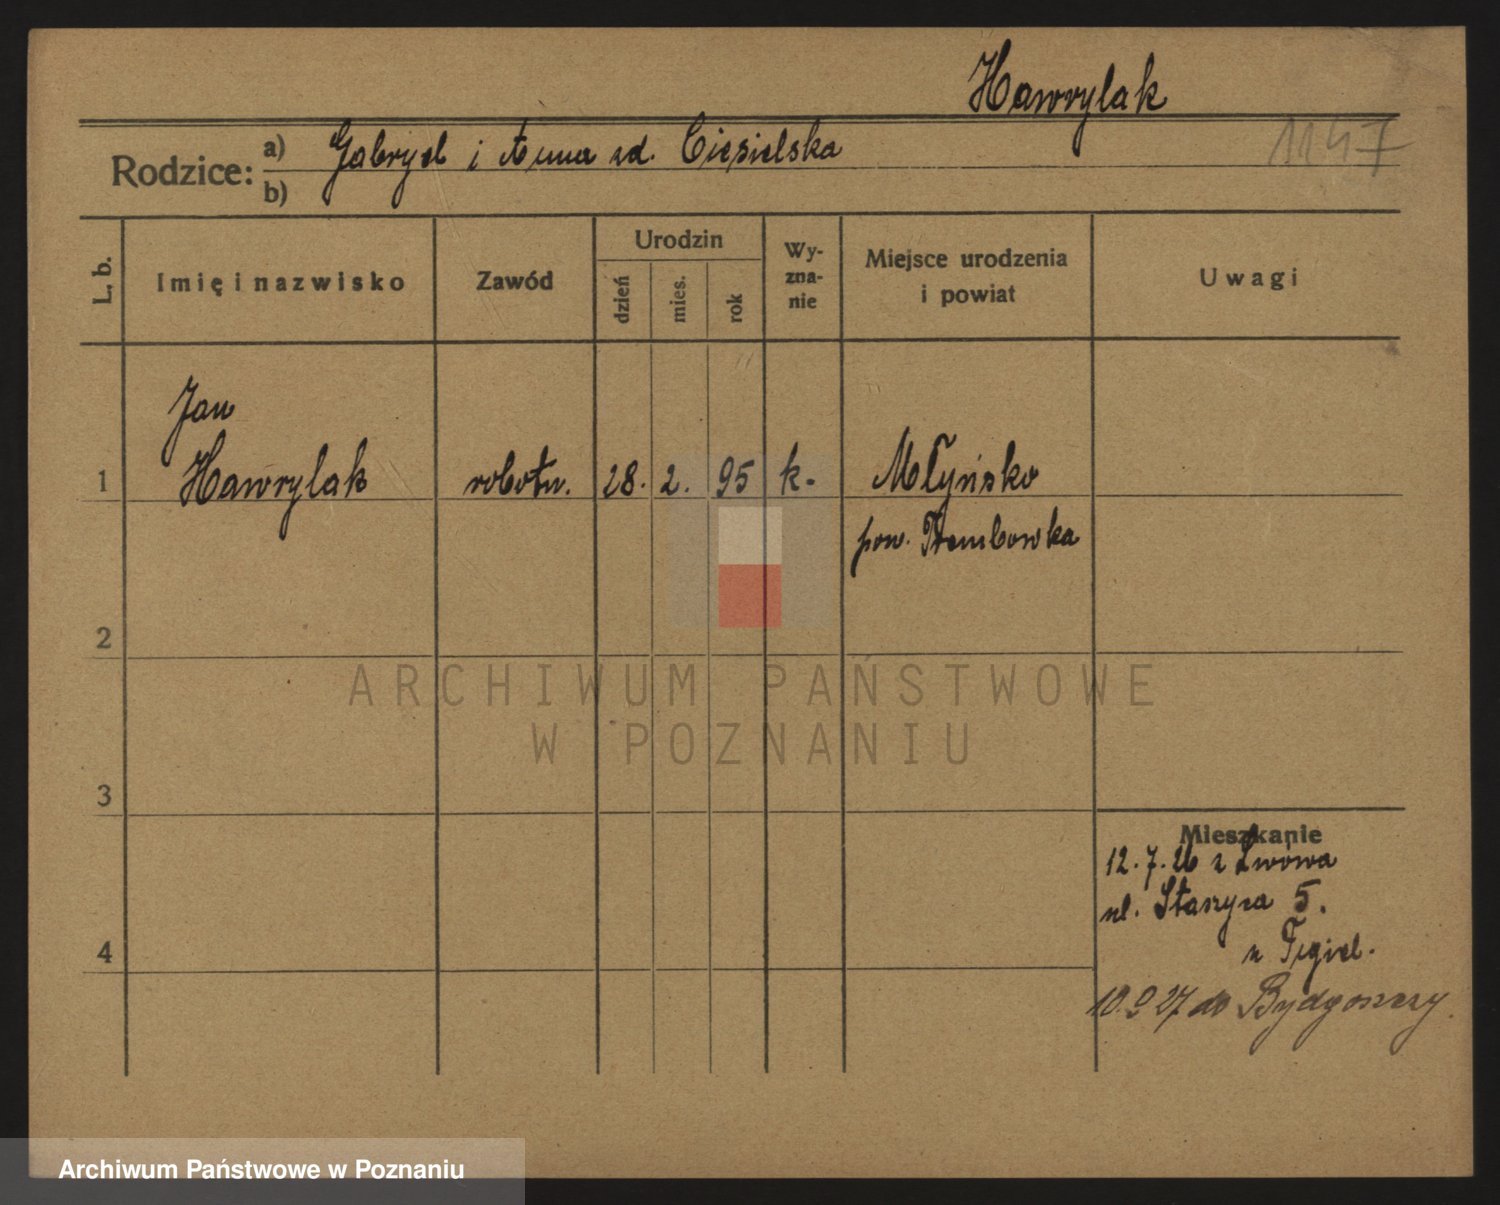 Hawrylak
1147
Rodzice: a) Gabryel i Anna zd. Ciesielska
b)
L. b.
Imię i nazwisko
Zawód
Urodzin
dzień
mies.
rok
Wy-
zna-
nie
Miejsce urodzenia
i powiat
Uwagi
Jan
1 Hawrylak robotn. 28. 2. 95 k. Młyńsko
pow. Trembowka
2
ARCHIWUM PAŃSTWOWE
W POZNANIU
3
Mieszkanie
12.7.26 z Lwowa
ul. Staszyca 5.
4
10.9 27 do Bydgoszczy.
Archiwum Państwowe w Poznaniu